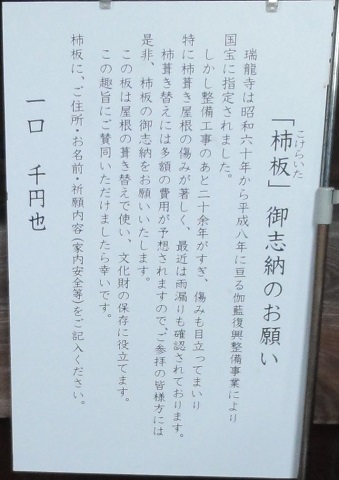 こけらいた
「柿板」御志納のお願い
瑞龍寺は昭和六十年から平成八年に亘る伽藍復興整備事業により
国宝に指定されました。
しかし整備工事のあと二十余年がすぎ、傷みも目立ってまいり
特に柿葺き屋根の傷みが著しく、最近は雨漏りも確認されております。
柿葺き替えには多額の費用が予想されますので、ご参拝の皆様方には
是非、柿板の御志納をお願いいたします。
この板は屋根の葺き替えで使い、文化財の保存に役立てます。
この趣旨にご賛同いただけましたら幸いです。
柿板に、ご住所・お名前・祈願内容(家内安全等)をご記入ください。
一口 千円也